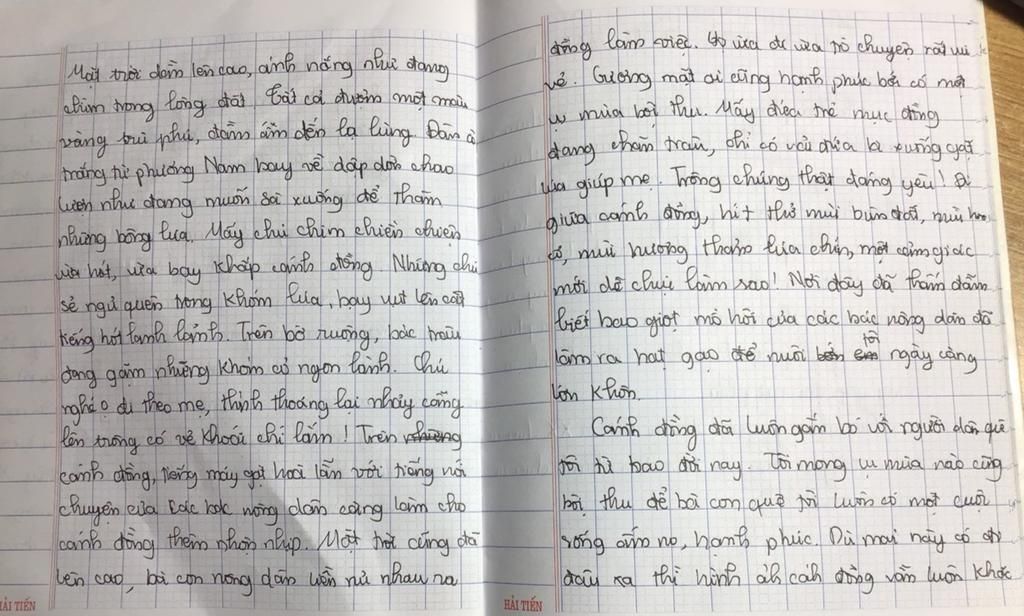 Mặt trời dần lên cao, ánh nắng như đang
chùm trong lòng đất. Tất cả đượm một màu
vàng trù phú, đầm ấm đến lạ lùng. Đàn cò
trắng từ phương Nam bay về dập dờn chao
lượn như đang muốn sà xuống để thăm
những bông lúa. Mấy chú chim chiền chiện
vừa hót, vừa bay khắp cánh đồng. Những chú
sẻ ngủ quên trong khóm lúa, bay vút lên cất
tiếng hót lanh lảnh. Trên bờ ruộng, bác trâu
đang gặm những khóm cỏ ngon lành. Chú
nghé o đi theo mẹ, thỉnh thoảng lại nhảy cẫng
lên trông có vẻ khoái chí lắm! Trên những
cánh đồng, tiếng máy gặt hoà lẫn với tiếng nói
chuyện của các bác nông dân càng làm cho
cánh đồng thêm nhộn nhịp. Mặt trời cũng đã
lên cao, bà con nông dân liền rủ nhau ra
HẢI TIẾN
đồng làm việc. Họ vừa đi vừa trò chuyện rất vui
vẻ. Gương mặt ai cũng hạnh phúc bởi có một
vụ mùa bội thu. Mấy đứa trẻ mục đồng
đang chăn trâu, chỉ có vài đứa là xuống gặt
lúa giúp mẹ. Trông chúng thật đáng yêu! Đi
giữa cánh đồng, hít thở mùi bùn đất, mùi
cỏ, mùi hương thơm lúa chín, một cảm giác
mới dễ chịu làm sao! Nơi đây đã thấm đẫm
biết bao giọt mồ hôi của các bác nông dân đã
làm ra hạt gạo để nuôi tôi ngày càng
lớn khôn.
Cánh đồng đã luôn gắn bó với người dân quê
tôi từ bao đời nay. Tôi mong vụ mùa nào cũng
bội thu để bà con quê tôi luôn có một cuộc
sống ấm no, hạnh phúc. Dù mai này có đi
đâu xa thì hình ảnh cánh đồng vẫn luôn khắc
HẢI TIẾN